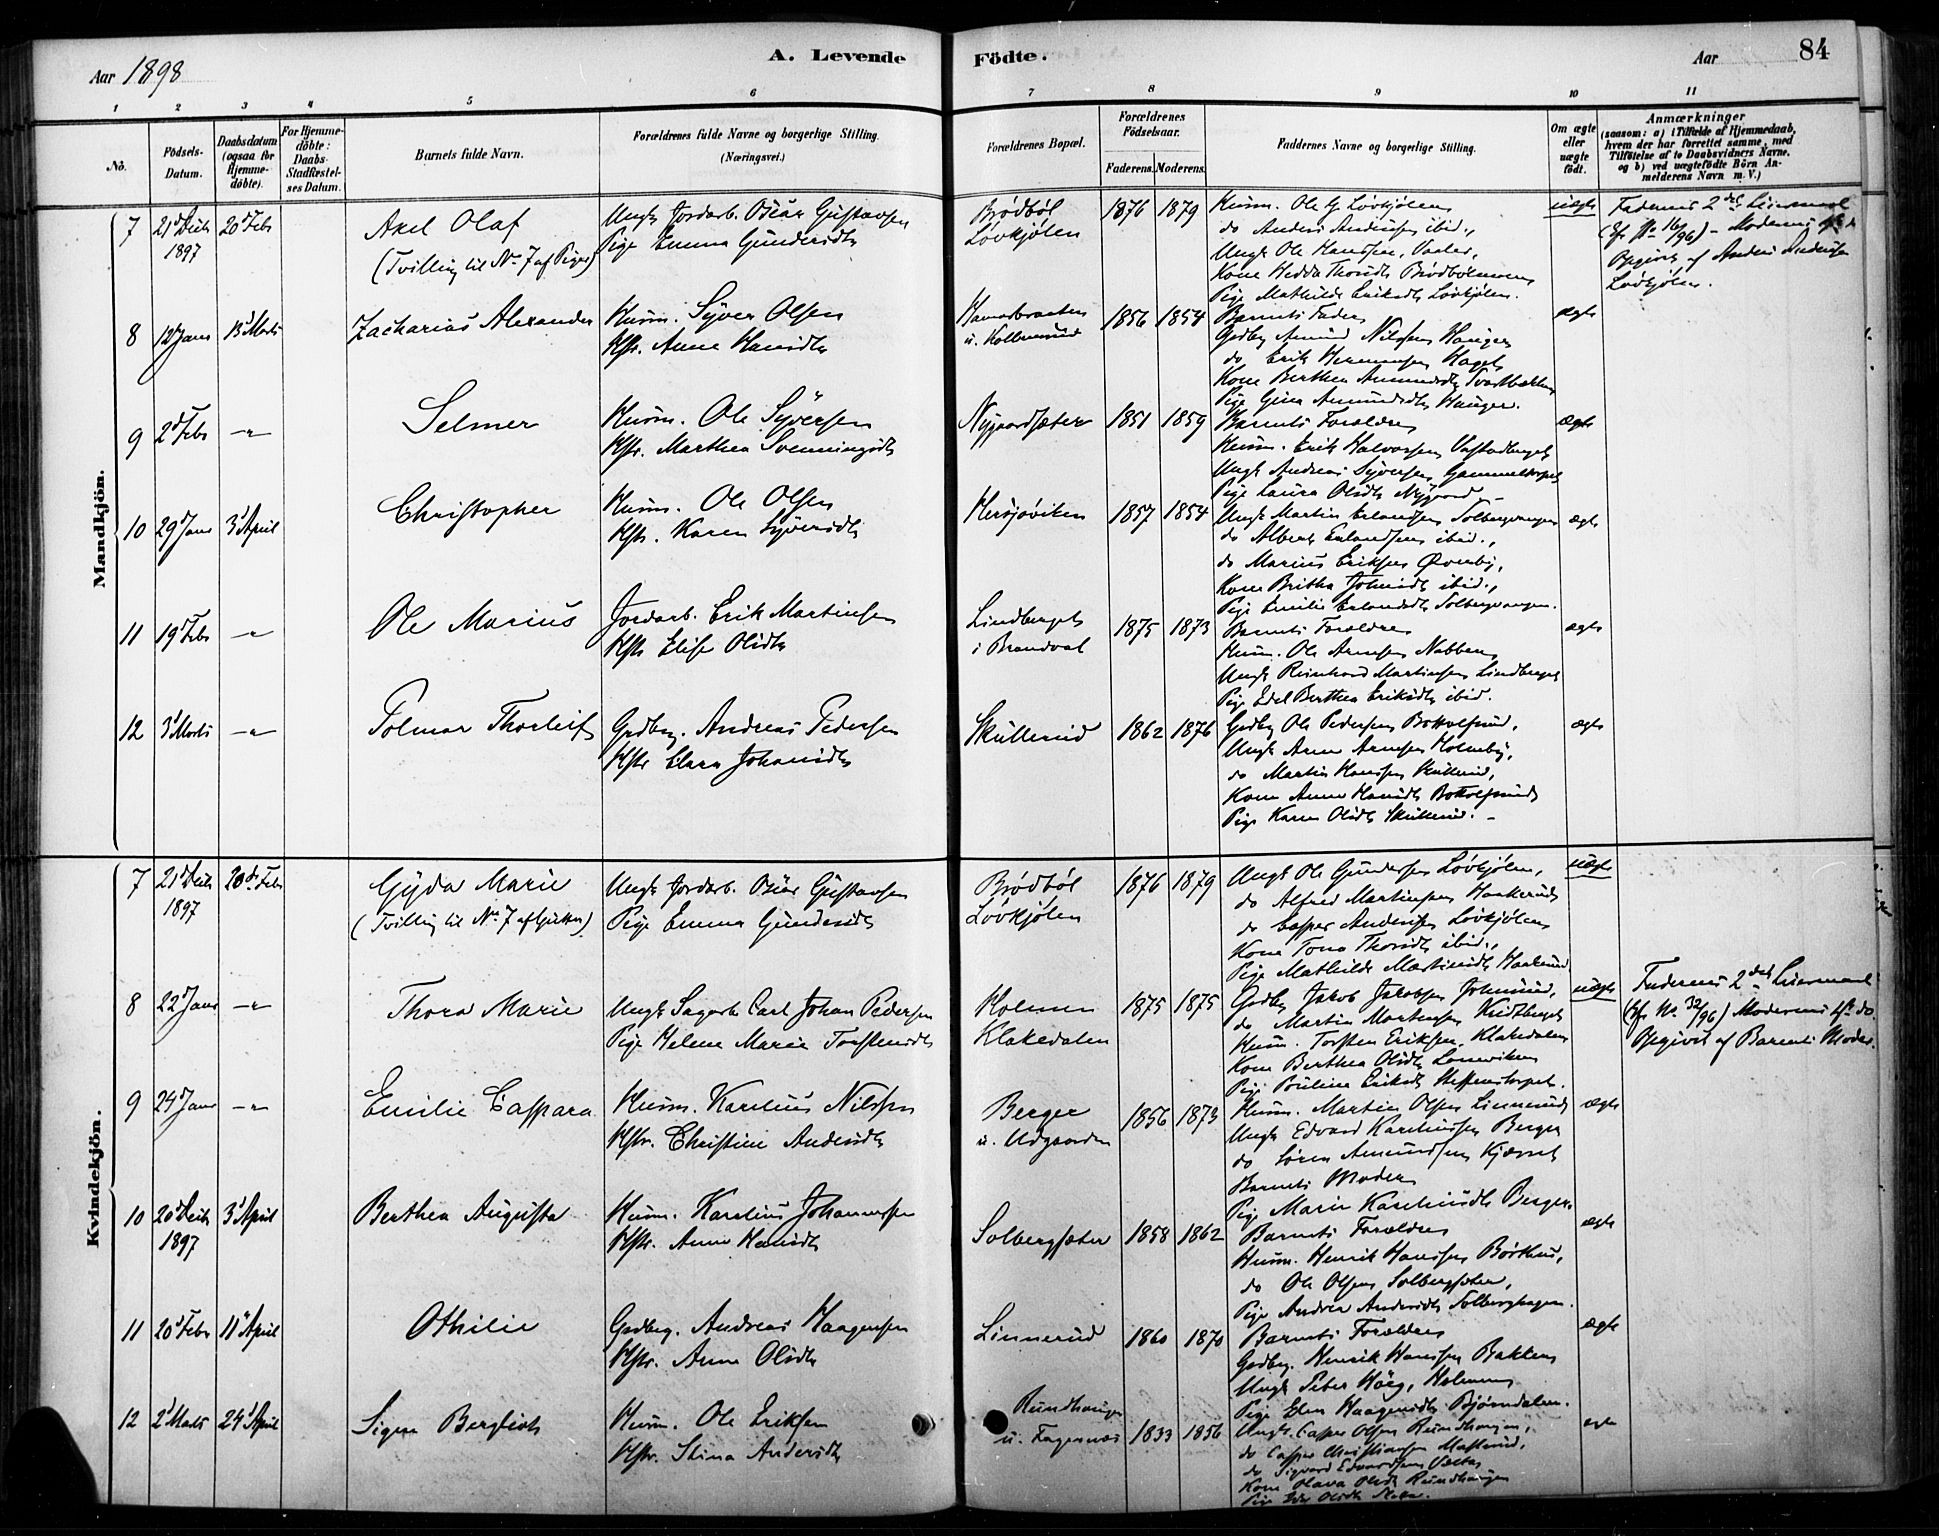 Aar 1898
A. Levende
Födte.
Aar
84
1 2 3 4 5 6 7 8 9 10 11
No.
Födsels-Datum.
Daabsdatum (ogsaa for Hjemme-döbte).
For Hjemme-döbte: Daabs-Stadfæstel-ses Datum.
Barnets fulde Navn.
Forældrenes fulde Navne og borgerlige Stilling.
(Næringsvei.)
Forældrenes Bopæl.
Forældrenes Födselsaar.
Faderens. Moderens.
Faddernes Navne og borgerlige Stilling.
Om ægte eller uægte födt.
Anmærkninger
(saasom: a) i Tilfælde af Hjemmedaab, hvem der har forrettet samme, med Tilföielse af to Daabsvidners Navne, og b) ved uægtefödte Börn An-melderens Navn m. V.)
Mandkjön.
7 21d Decb 1897 20d Feb Axel Olaf
(Tvilling til No 7 af Piger)
Ungk. Jordarb. Oscar Gustavsen
Pige Emma Gundersdtr
Brødbøl
Løvkjølen
1876 1879
Husm. Ole G. Løvkjølen
do Anders Andersen ibid.,
Ungk Ole Hanssen, Vaaler,
Kone Hedda Thorsdtr Brødbølmoen
Pige Mathilde Eriksdtr Løvkjølen.
uægte
Faderens 2det Leiermaal
(Cfr. No 16/96) - Moderens
Opgivet af Anders Andersen
Løvkjølen.
8 12d Janr 13d Marts Zacharias Alexander
Husm. Syver Olsen
Hstr. Anne Hansdtr
u. Kolbmund
1856 1854
Barnets Fader
Gdbrg Amund Nilssen Hauger
do Erik Hermansen Haget
Kone Berthea Amundsdtr Svartbækken
Pige Gina Amundsdtr Hauger.
ægte
9 2d Feb —„— Selmer
Husm. Ole Syversen
Hstr. Marthea Svenningsdtr
Nygaardsæter
1851 1859
Barnets Forældre
Husm. Erik Halvorsen Vastadberget
Ungk Andreas Syversen Gammeltorpet
Pige Laura Olsdtr Nygaard. -
ægte
10 29d Janr 3d April Christopher
Husm. Ole Olsen
Hstr. Karen Syversdtr
Hersjøviken
1857 1854
Ungk Martin Erlandsen Solbergvangen
do Albert Erlandsen ibid.,
do Marius Eriksen Øvreby,
Kone Britha Johnsdtr ibid.,
Pige Emilie Erlandsdtr Solbergvangen.
ægte
11 19d Feb —„— Ole Marius
Jordarb. Erik Martinsen
Hstr Elise Olsdtr
Lindberget
i Brandval
1875 1873
Barnets Forældre
Husm. Ole Arnesen Nabben
Ungk Reinhard Martinsen Lindberget
Pige Edel Berthea Eriksdtr ibid.
ægte
12 3d Marts —„— Polmar Thorleif
Gdbrg. Andreas Pedersen
Hstr Clara Johansdtr
Skullerud
1862 1876
Gdbrg Ole Pedersen Bottolfsrud,
Ungk Arne Arnesen Holmby,
do Martin Hanssen Skullerud,
Kone Anne Hansdtr Bottolfsrud
Pige Karen Olsdtr Skullerud. -
ægte
Kvindekjön.
7 21d Decb 1897 20de Feb Gyda Marie
(Tvilling til No 7 af Gutter)
Ungk Jordarb. Oscar Gustavsen
Pige Emma Gundersdtr
Brødbøl
Løvkjølen
1876 1879
Ungk Ole Gundersen Løvkjølen,
do Alfred Martinsen Haakerud
do Casper Andersen Løvkjølen
Kone Tona Thorsdtr ibid.,
Pige Mathilde Martinsdtr Haakerud
uægte
8 22d Janr —„— Thora Marie
Ungk Sagarb. Carl Johan Pedersen
Pige Helene Marie Torstensdtr
Holmen
Klakedalen
1875 1875
Gdbrg Jakob Jakobsen Johnsrud,
do Martin Martinsen Kvidtberget
Husm. Torsten Eriksen Klakedalen
Kone Berthea Olsdtr Lomviken
Pige Pauline Eriksdtr Steffenstorpet.
uægte
Faderens 2det Leiermaal
(Cfr No. 32/96) Moderens 1ste do.
Opgivet af Barnets Moder.
9 24d Janr —„— Emilie Caspara
Husm. Karelius Nilssen
Hstr. Christine Andersdtr
Berger
u. Udgaarden
1856 1873
Husm. Martin Olsen Linnerud
Ungk Edvard Kareliussen Berger
do Søren Amundsen Kjærret
Barnets Moder
Pige Marie Kareliusdtr Berger.
ægte
10 20d Decb 1897 3d April Berthea Augusta
Husm. Karelius Johannessen
Hstr. Anne Hansdtr
Solbergsæter
1858 1862
Barnets Forældre
Husm. Henrik Hanssen Børthus,
do Ole Olsen Solbergsæter,
Pige Andrea Andersdtr Solberghagen.
ægte
11 20d Feb 11te April Othilie
Gdbrg. Andreas Haagensen
Hstr. Anne Olsdtr
Linnerud
1860 1870
Barnets Forældre
Gdbrg. Henrik Hanssen Bakken
Ungk Peter Høeg, Holmen
Pige Elen Haagensdtr Bjørndalen.
ægte
12 2d Marts 24d April Signe Bergliot
Husm. Ole Eriksen
Hstr. Stina Andersdtr
Rundhaugen
u. Fagernæs
1833 1856
Ungk. Casper Olsen Rundhaugen,
do Casper Christiansen Mastrud,
do Sigvard Edvardsen
Kone Olava Olsdtr Rundhaugen
Pige Olsdtr
ægte